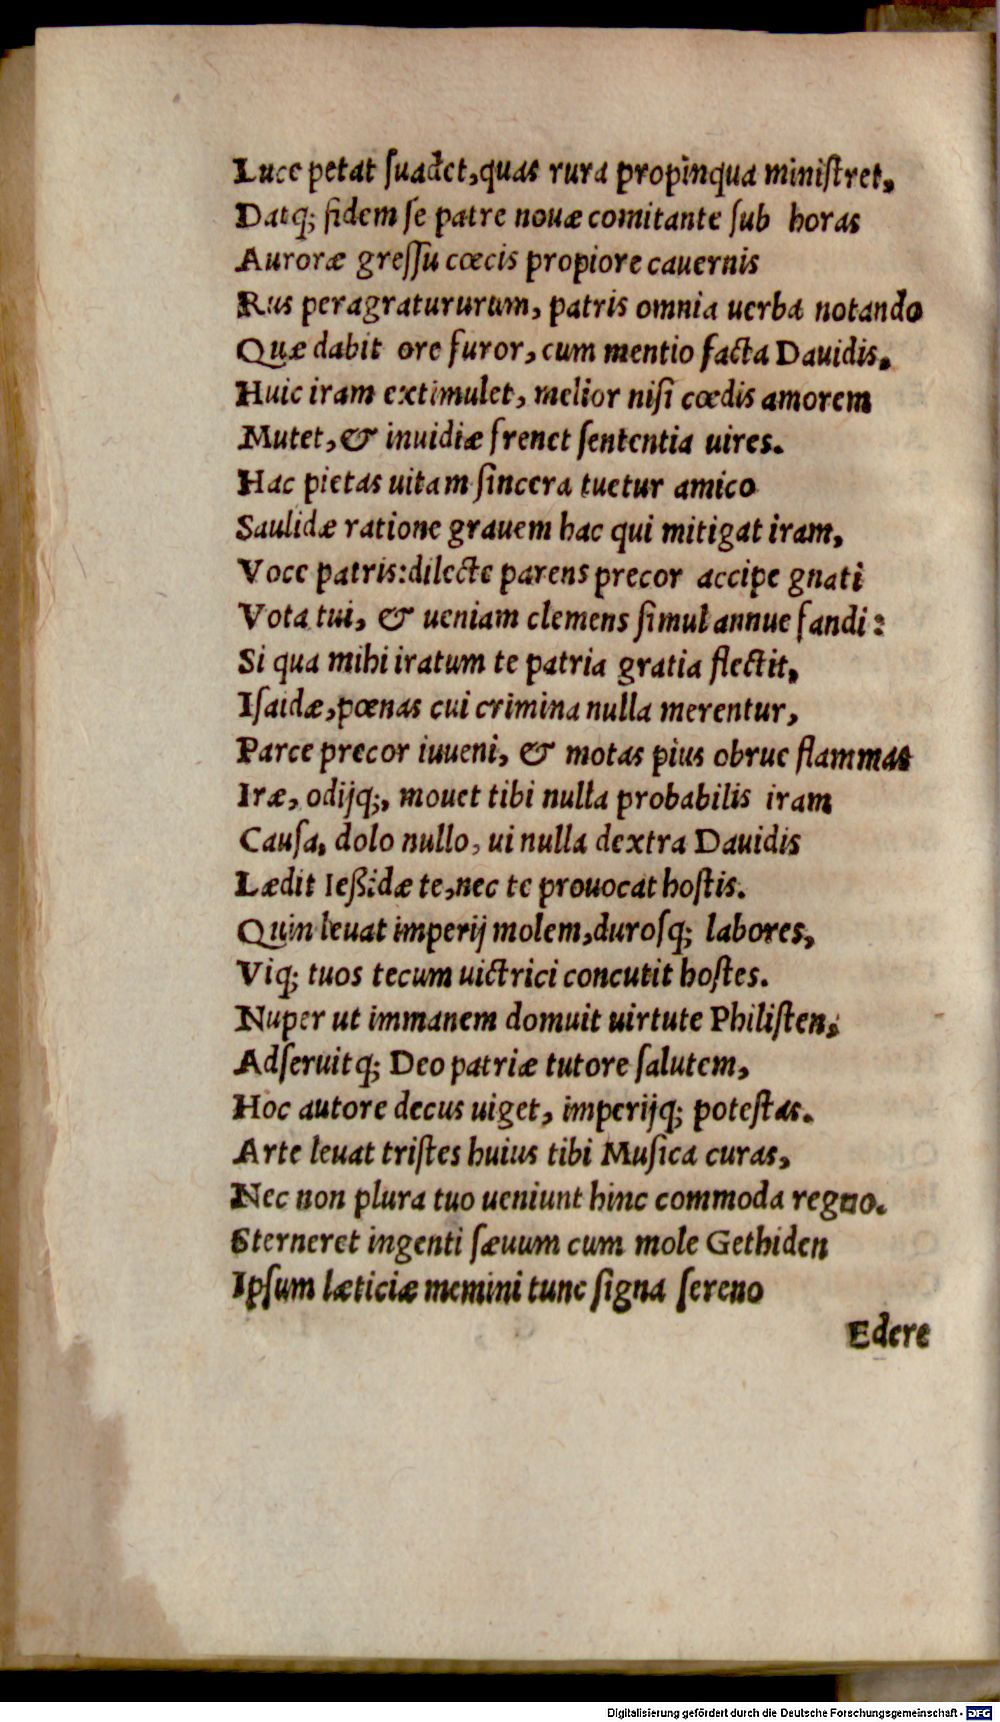 Luce petat ſuadet,quas rura propinqua miniſtret,
Datq; fidem ſe patre nouæ comitante ſub horas
Auroræ greſſu cœcis propiore cauernis
Rus peragraturum, patris omnia uerba notando
Quæ dabit ore furor, cum mentio facta Dauidis,
Huic iram extimulet, melior niſi cœdis amorem
Mutet, & inuidiæ frenet ſententia uires.
Hac pietas uitam ſincera tuetur amico
Saulidæ ratione grauem hac qui mitigat iram,
Voce patris:dilecte parens precor accipe gnati
Vota tui, & ueniam clemens ſimul annue fandi:
Si qua mihi iratum te patria gratia flectit,
Iſaidæ,pœnas cui crimina nulla merentur,
Parce precor iuueni, & motas pius obrue flammas
Iræ, odijq;, mouet tibi nulla probabilis iram
Cauſa, dolo nullo, ui nulla dextra Dauidis
Lædit Ießidæ te,nec te prouocat hoſtis.
Quin leuat imperij molem,duroſq; labores,
Viq; tuos tecum uictrici concutit hoſtes.
Nuper ut immanem domuit uirtute Philiſten,
Adſeruitq; Deo patriæ tutore ſalutem,
Hoc autore decus uiget, imperijq; poteſtas.
Arte leuat triſtes huius tibi Muſica curas,
Nec non plura tuo ueniunt hinc commoda regno.
Sterneret ingenti ſæuum cum mole Gethiden
Ipſum læticiæ memini tunc ſigna ſereno
Edere
Digitalisierung gefördert durch die Deutsche Forschungsgemeinschaft - DFG